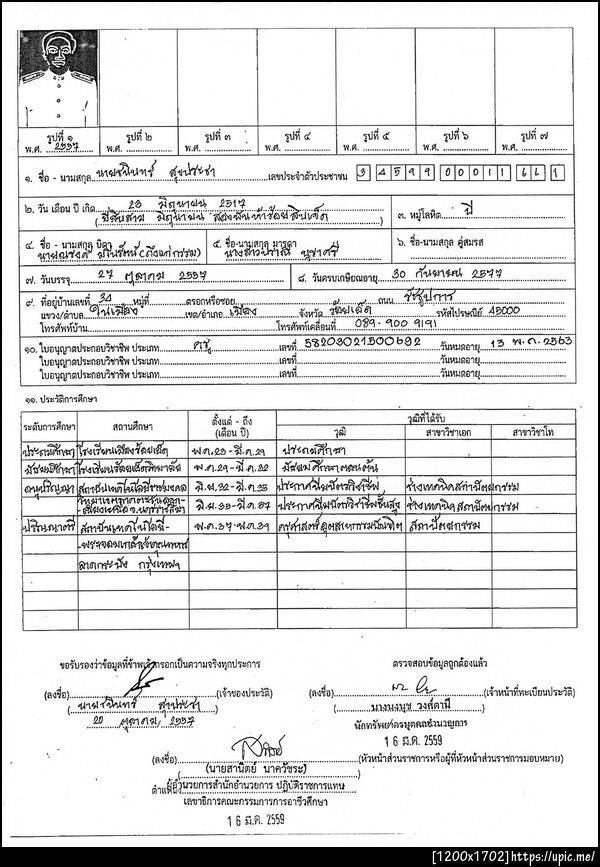 รูปที่ ๑ รูปที่ ๒ รูปที่ ๓ รูปที่ ๔ รูปที่ ๕ รูปที่ ๖ รูปที่ ๗
พ.ศ. 2557 พ.ศ. พ.ศ. พ.ศ. พ.ศ. พ.ศ. พ.ศ.
๑. ชื่อ - นามสกุล นายชนินทร์ สุขประชา เลขประจำตัวประชาชน 3 4599 00011
๒. วัน เดือน ปี เกิด 23 มิถุนายน 2517 ๓. หมู่โลหิต บี
(ยี่สิบสาม มิถุนายน สองพันห้าร้อยสิบเจ็ด)
๔. ชื่อ - นามสกุล บิดา ๕. ชื่อ-นามสกุล มารดา ๖. ชื่อ-นามสกุล คู่สมรส
(ถึงแก่กรรม)
๗. วันบรรจุ 27 ตุลาคม 2557 ๘. วันครบเกษียณอายุ 30 กันยายน 2577
๙. ที่อยู่บ้านเลขที่ 34 หมู่ที่ ตรอกหรือซอย ถนน รัชชูปการ
แขวง/ตำบล ในเมือง เขต/อำเภอ เมือง จังหวัด ร้อยเอ็ด รหัสไปรษณีย์ 45000
โทรศัพท์บ้าน โทรศัพท์เคลื่อนที่ 089-900 9191
๑๐. ใบอนุญาตประกอบวิชาชีพ ประเภท ครู เลขที่ 58203021500692 วันหมดอายุ 13 พ.ค. 2563
ใบอนุญาตประกอบวิชาชีพ ประเภท เลขที่ วันหมดอายุ
ใบอนุญาตประกอบวิชาชีพ ประเภท เลขที่ วันหมดอายุ
๑๑. ประวัติการศึกษา
ระดับการศึกษา สถานศึกษา ตั้งแต่ - ถึง (เดือน ปี) วุฒิที่ได้รับ
วุฒิ สาขาวิชาเอก สาขาวิชาโท
ประถมศึกษา โรงเรียนเมืองร้อยเอ็ด พ.ค.23-มี.ค.29 ประถมศึกษา
มัธยมศึกษา โรงเรียนร้อยเอ็ดวิทยาลัย พ.ค.29-มี.ค.32 มัธยมศึกษาตอนต้น
อนุปริญญา สถาบันเทคโนโลยีราชมงคล มิ.ย.32-มี.ค.35 ประกาศนียบัตรวิชาชีพ ช่างเทคนิคสถาปัตยกรรม
มิ.ย.35-มี.ค.37 ประกาศนียบัตรวิชาชีพชั้นสูง ช่างเทคนิคสถาปัตยกรรม
ปริญญาตรี สถาบันเทคโนโลยี- พ.ค.37-พ.ค.39 ครุศาสตร์อุตสาหกรรมบัณฑิต สถาปัตยกรรม
-พระจอมเกล้าเจ้าคุณทหาร
ลาดกระบัง กรุงเทพฯ
ขอรับรองว่าข้อมูลที่ข้าพเจ้ากรอกเป็นความจริงทุกประการ ตรวจสอบข้อมูลถูกต้องแล้ว
(ลงชื่อ) (เจ้าของประวัติ) (ลงชื่อ) (เจ้าหน้าที่ทะเบียนประวัติ)
(นายชนินทร์ สุขประชา) (นางนงนุช วงศ์คานี)
20 ตุลาคม, 2557 นักทรัพยากรบุคคลชำนาญการ
16 มี.ค. 2559
(ลงชื่อ) (หัวหน้าส่วนราชการหรือผู้ที่หัวหน้าส่วนราชการมอบหมาย)
(นายสานิตย์ นาควัชระ)
ตำแหน่ง ผู้อำนวยการสำนักอำนวยการ ปฏิบัติราชการแทน
เลขาธิการคณะกรรมการการอาชีวศึกษา
16 มี.ค. 2559
[1200x1702]https://upic.me/